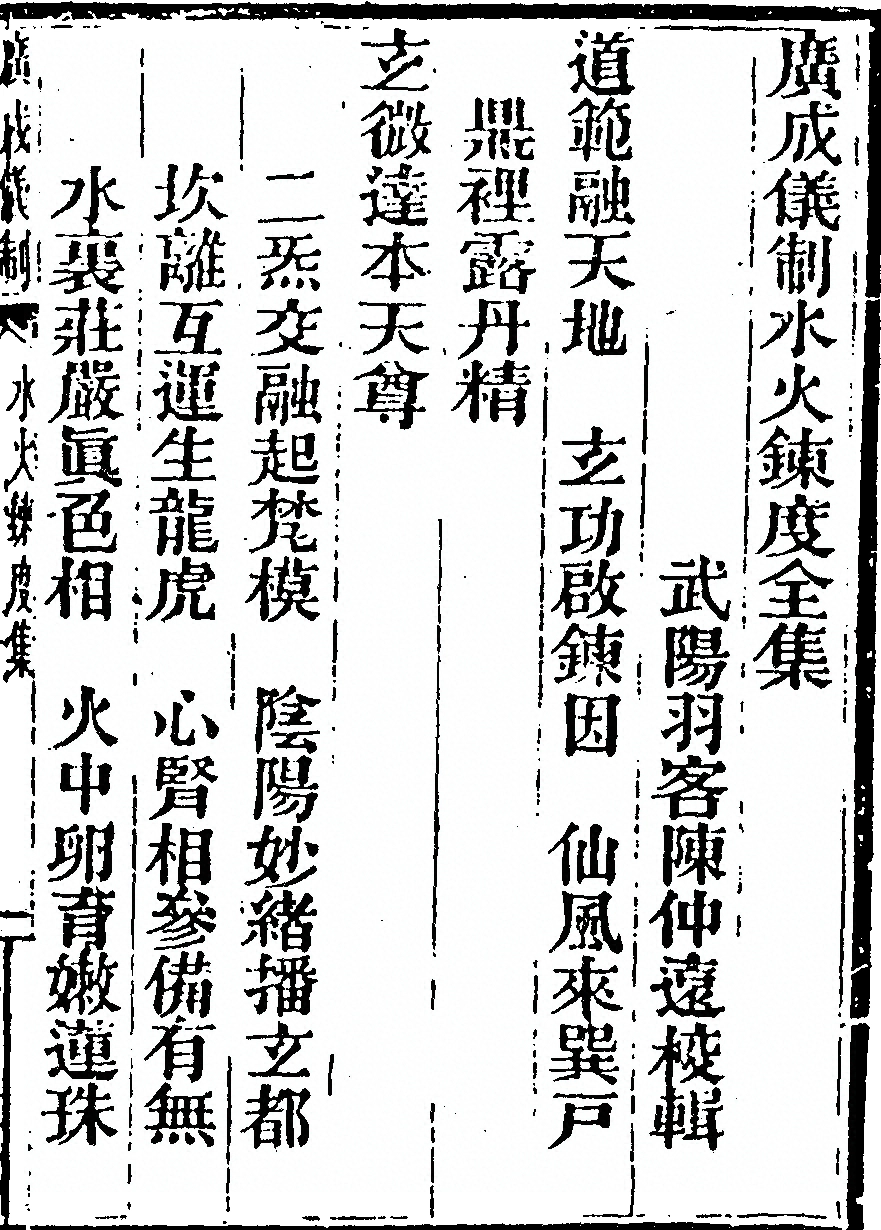 廣成儀制水火鍊度全集
武陽羽客陳仲遠校輯
道範融天地　玄功啟鍊因　仙風來巽戸
鼎裡露丹精
玄微達本天尊
二炁交融起梵模　陰陽妙緒播玄都
坎離互運生龍虎　心腎相參備有無
水裏莊嚴眞色相　火中卵育嫩蓮珠
廣成儀制　水火鍊度集　一